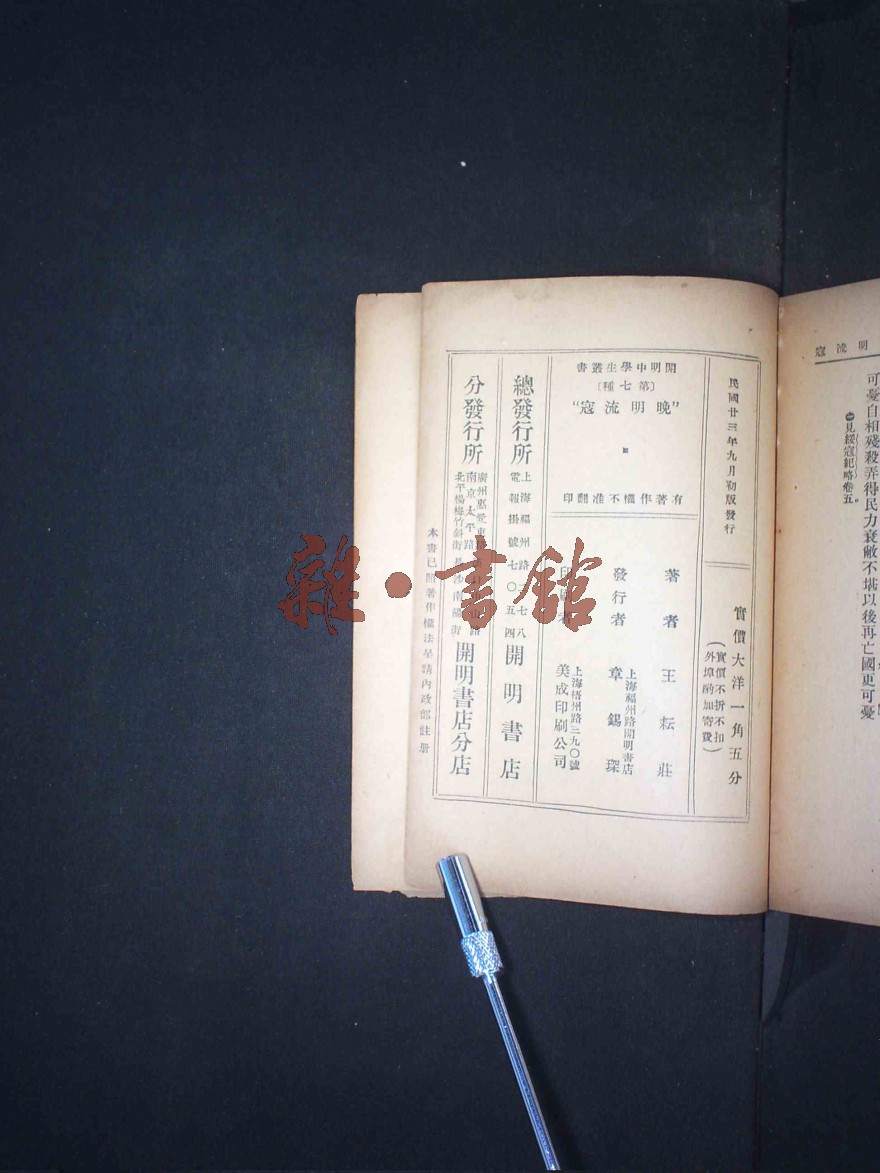 明流寇
可憂自相殘殺弄得民力衰敝不堪以後再亡國更可憂
見綏寇紀略卷五。
民國廿三年九月初版發行
實價大洋一角五分
(實價不折不扣
外埠酌加寄費)
開明中學生叢書
〔第七種〕
“晚明流寇”
有著作權不准翻印
著者 王耘莊
發行者 章錫琛
上海福州路開明書店
印刷者 美成印刷公司
上海梧州路三九〇號
總發行所 開明書店
上海福州路二七八
電報掛號七〇五四
分發行所 開明書店分店
廣州惠愛東路
南京太平路
北平楊梅竹斜街 長沙南陽街
本書已照著作權法呈請內政部註冊
雜·書館